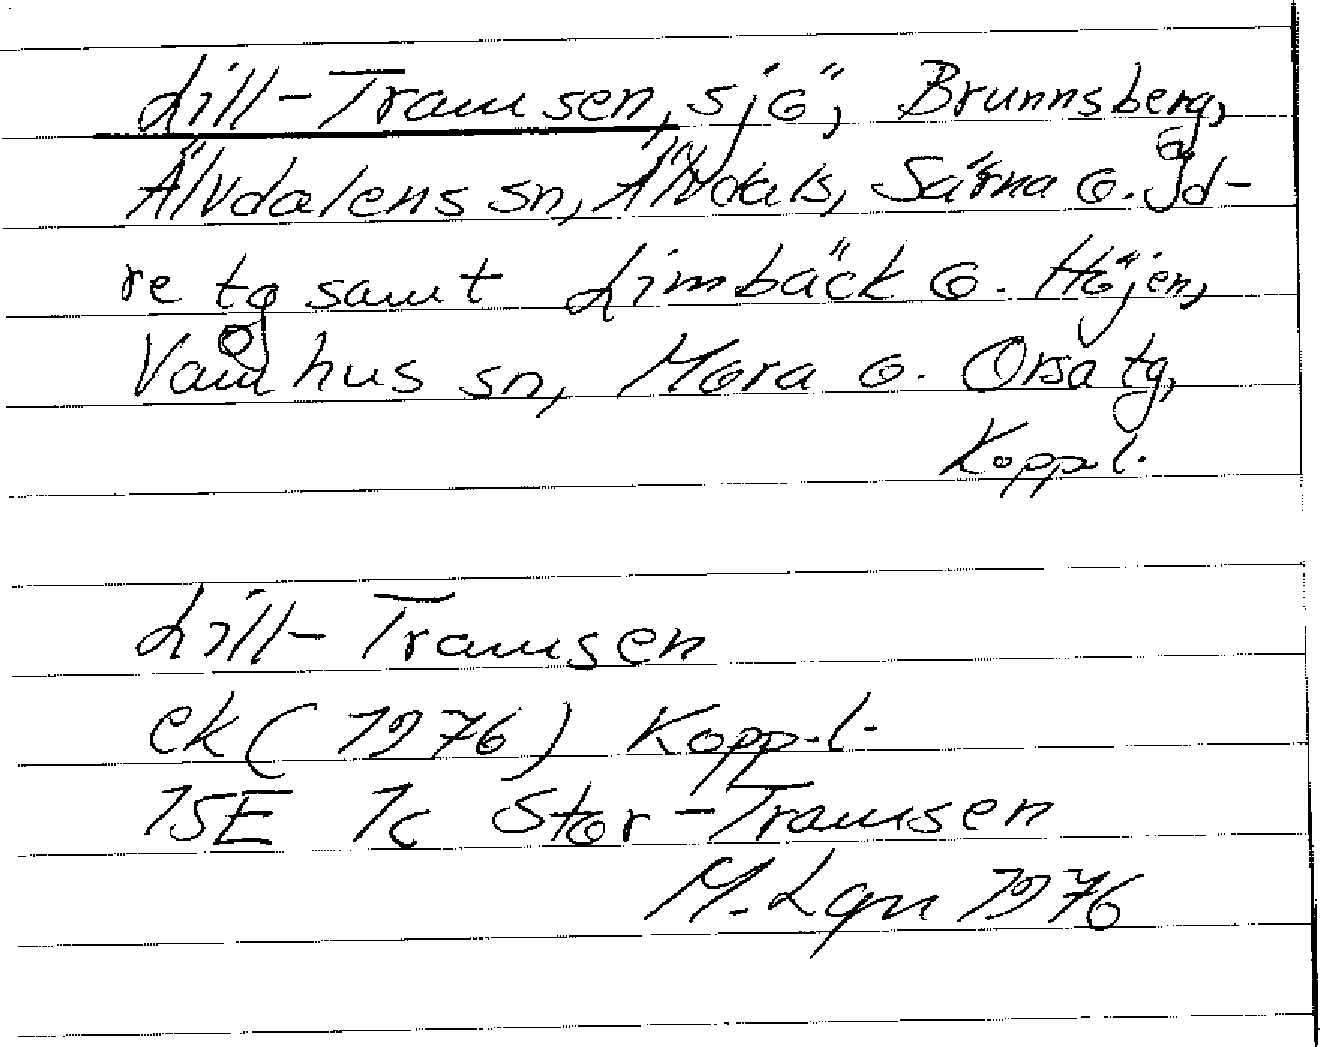 Lill-Tramsen, sjö, Brunnsberg,
Älvdalens sn, Älvdals, Särna o. Id-
re tg samt Limbäck o. Höjen,
Våmhus sn, Mora o. Orsa tg,
Kopp.l.
Lill-Tramsen
ek (1976) Kopp.l.
15E 1c Stor-Tramsen
M. Lgn 1976